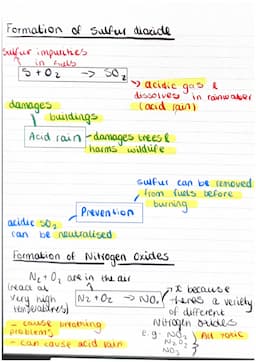 Formation of sulfur dioxide
sulfur impurities
in fuels
S + O₂ → SO₂
→ acidic gas &
dissolves in rainwater
(acid rain)
damages
buildings
Acid rain
damages trees &
harms wildlife
sulfur can be removed
from fuels before
burning
Prevention
acidic SO₂
can be neutralised
Formation of Nitrogen Oxides
N₂ + O₂ are in the air
(react at
very high
temperatures)
N₂ + O₂ → NOₓ
x because
there's a variety
of different
Nitrogen Oxides
- cause breathing
problems
- can cause acid rain
e.g. NO
N₂O
NO₂
All toxic